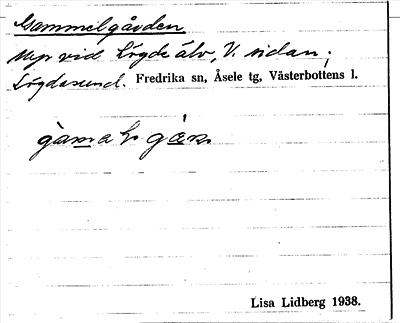 Gammelgården
Myr vid Lögde älv, V. sidan;
Lögdasund. Fredrika sn, Åsele tg, Västerbottens l.
Lisa Lidberg 1938.